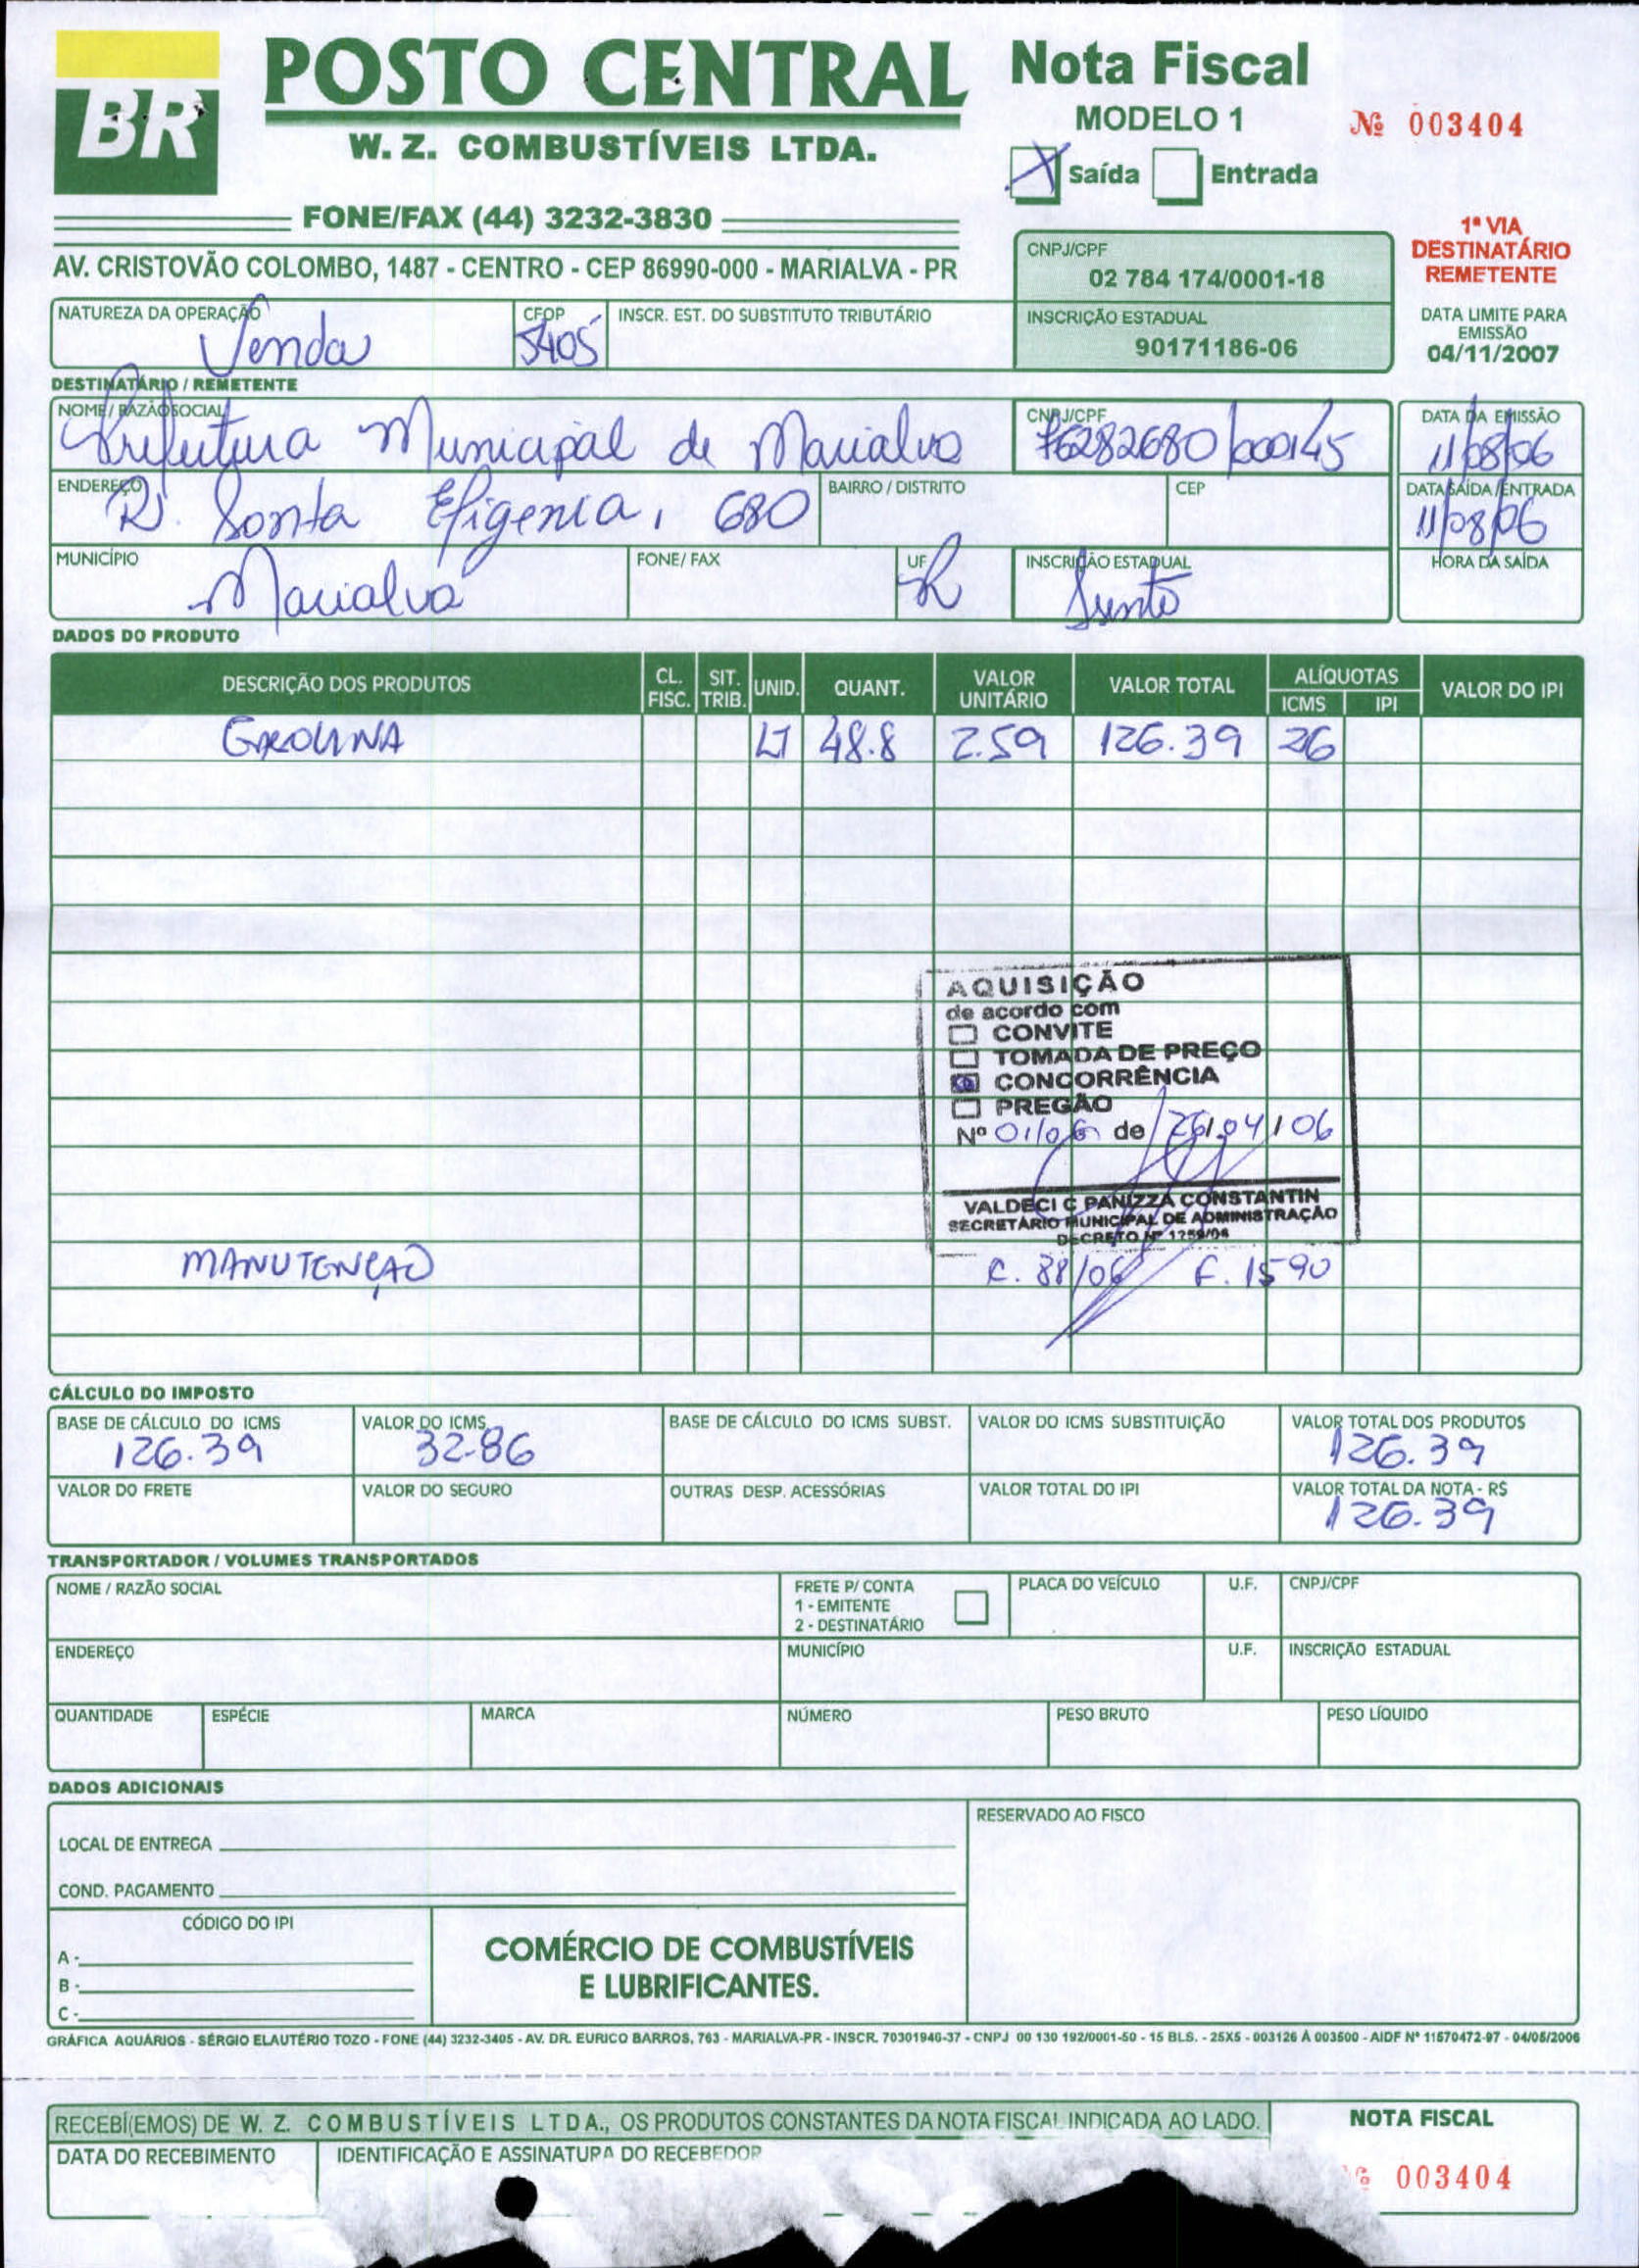 BR
POSTO CENTRAL
W. Z. COMBUSTÍVEIS LTDA.
FONE/FAX (44) 3232-3830
AV. CRISTOVÃO COLOMBO, 1487 - CENTRO - CEP 86990-000 - MARIALVA - PR
Nota Fiscal
MODELO 1
Nº 003404
X Saída Entrada
1ª VIA
DESTINATÁRIO
REMETENTE
CNPJ/CPF
02 784 174/0001-18
INSCRIÇÃO ESTADUAL
90171186-06
DATA LIMITE PARA
EMISSÃO
04/11/2007
NATUREZA DA OPERAÇÃO CFOP INSCR. EST. DO SUBSTITUTO TRIBUTÁRIO
Venda 5405
DESTINATÁRIO / REMETENTE
NOME / RAZÃO SOCIAL CNPJ/CPF DATA DA EMISSÃO
Prefeitura Municipal de Marialva 76282680/000145 11/08/06
ENDEREÇO BAIRRO / DISTRITO CEP DATA SAÍDA / ENTRADA
R. Santa Efigenia, 680 11/08/06
MUNICÍPIO FONE/ FAX UF INSCRIÇÃO ESTADUAL HORA DA SAÍDA
Marialva
DADOS DO PRODUTO
DESCRIÇÃO DOS PRODUTOS CL. FISC. SIT. TRIB. UNID. QUANT. VALOR UNITÁRIO VALOR TOTAL ALÍQUOTAS ICMS IPI VALOR DO IPI
LT 48.8 2.59 126.39 26
AQUISIÇÃO
de acordo com
CONVITE
TOMADA DE PREÇO
CONCORRÊNCIA
PREGÃO
Nº 01/06 de 26/04/06
VALDECI C PANIZZA CONSTANTIN
SECRETÁRIO MUNICIPAL DE ADMINISTRAÇÃO
DECRETO Nº
MANUTENÇÃO C. 88/06 F. 1590
CÁLCULO DO IMPOSTO
BASE DE CÁLCULO DO ICMS VALOR DO ICMS BASE DE CÁLCULO DO ICMS SUBST. VALOR DO ICMS SUBSTITUIÇÃO VALOR TOTAL DOS PRODUTOS
126.39 32.86 126.39
VALOR DO FRETE VALOR DO SEGURO OUTRAS DESP. ACESSÓRIAS VALOR TOTAL DO IPI VALOR TOTAL DA NOTA - R$
126.39
TRANSPORTADOR / VOLUMES TRANSPORTADOS
NOME / RAZÃO SOCIAL FRETE P/ CONTA PLACA DO VEÍCULO U.F. CNPJ/CPF
1 - EMITENTE
2 - DESTINATÁRIO
ENDEREÇO MUNICÍPIO U.F. INSCRIÇÃO ESTADUAL
QUANTIDADE ESPÉCIE MARCA NÚMERO PESO BRUTO PESO LÍQUIDO
DADOS ADICIONAIS
RESERVADO AO FISCO
LOCAL DE ENTREGA
COND. PAGAMENTO
CÓDIGO DO IPI
A -
B -
C -
COMÉRCIO DE COMBUSTÍVEIS
E LUBRIFICANTES.
GRÁFICA AQUÁRIOS - SÉRGIO ELAUTÉRIO TOZO - FONE (44) 3232-3405 - AV. DR. EURICO BARROS, 763 - MARIALVA-PR - INSCR. 70301940-37 - CNPJ 00 130 192/0001-50 - 15 BLS. - 25X5 - 003126 À 003500 - AIDF Nº 11570472-97 - 04/05/2006
RECEBÍ(EMOS) DE W. Z. COMBUSTÍVEIS LTDA., OS PRODUTOS CONSTANTES DA NOTA FISCAL INDICADA AO LADO.
NOTA FISCAL
DATA DO RECEBIMENTO IDENTIFICAÇÃO E ASSINATURA DO RECEBEDOR
003404